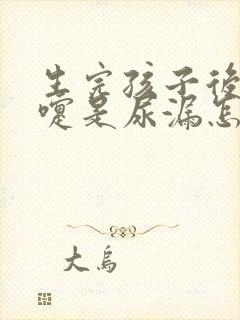 生完孩子後
嚏是尿漏怎
大烏